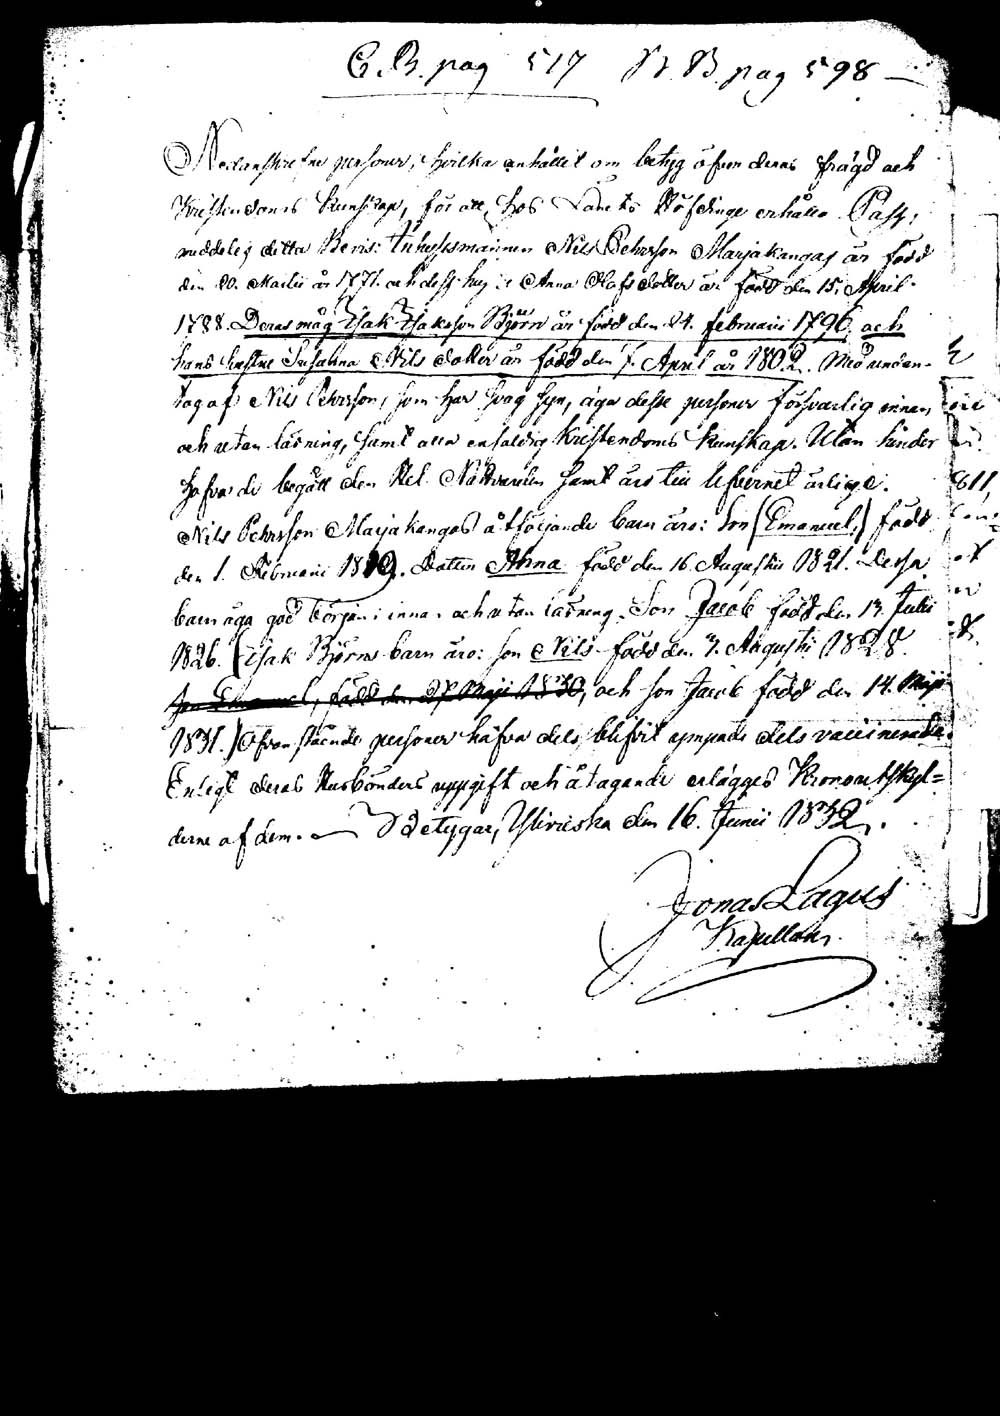 C. B. pag 517 N. B. pag 598 —
Nedanskrefne personer, hvilka anhållit om betyg öfver deras frägd och
Kristendoms kunskap, för att, hos Landts Höfdinge erhålla Pass,
meddelas detta Bevis: Inhysesmannen Nils Pehrsson Marjakangas är född
den 20. Martii år 1771. och dess hustru Anna Olofs Dotter är född den 15. April
1788. Deras måg Isak Isaksson Björn är född den 24. februarii 1796 och
hans hustru Susanna Nils Dotter är född den 7. April år 1802. Med undan-
tag af Nils Pehrsson, som har svag syn, äga desse personer försvarlig innan
och utan läsning, samt alla enfaldig Kristendoms kunskap. Utan hinder
hafva de begått den Hel. Nattvarden samt äro till lefvernet ärlige.
Nils Pehrsson Marjakangas åtföljande barn äro: Son (Emanuel,) född
den 1. Februarii 1819. Dottern Anna född den 16. Augustii 1821. Dessa
barn äga god början i innan och utan läsning. Son Jacob född den 13. Julii
1826. (Isak Björns barn äro: son Nils född den 3. Augustii 1828.
son Emanuel, född den 27 Maji 1830, och son Jacob född den 14. Maji
1831.) Ofvanstående personer hafva dels blifvit ympade dels vaccinerade.
Enligt deras Husbönders uppgift och åtagande erlägges Kronoutskyl=
derne af dem. — Betygar, Ylivieska den 16. Junii 1832.
Jonas Lagus
Kapellan.
811,